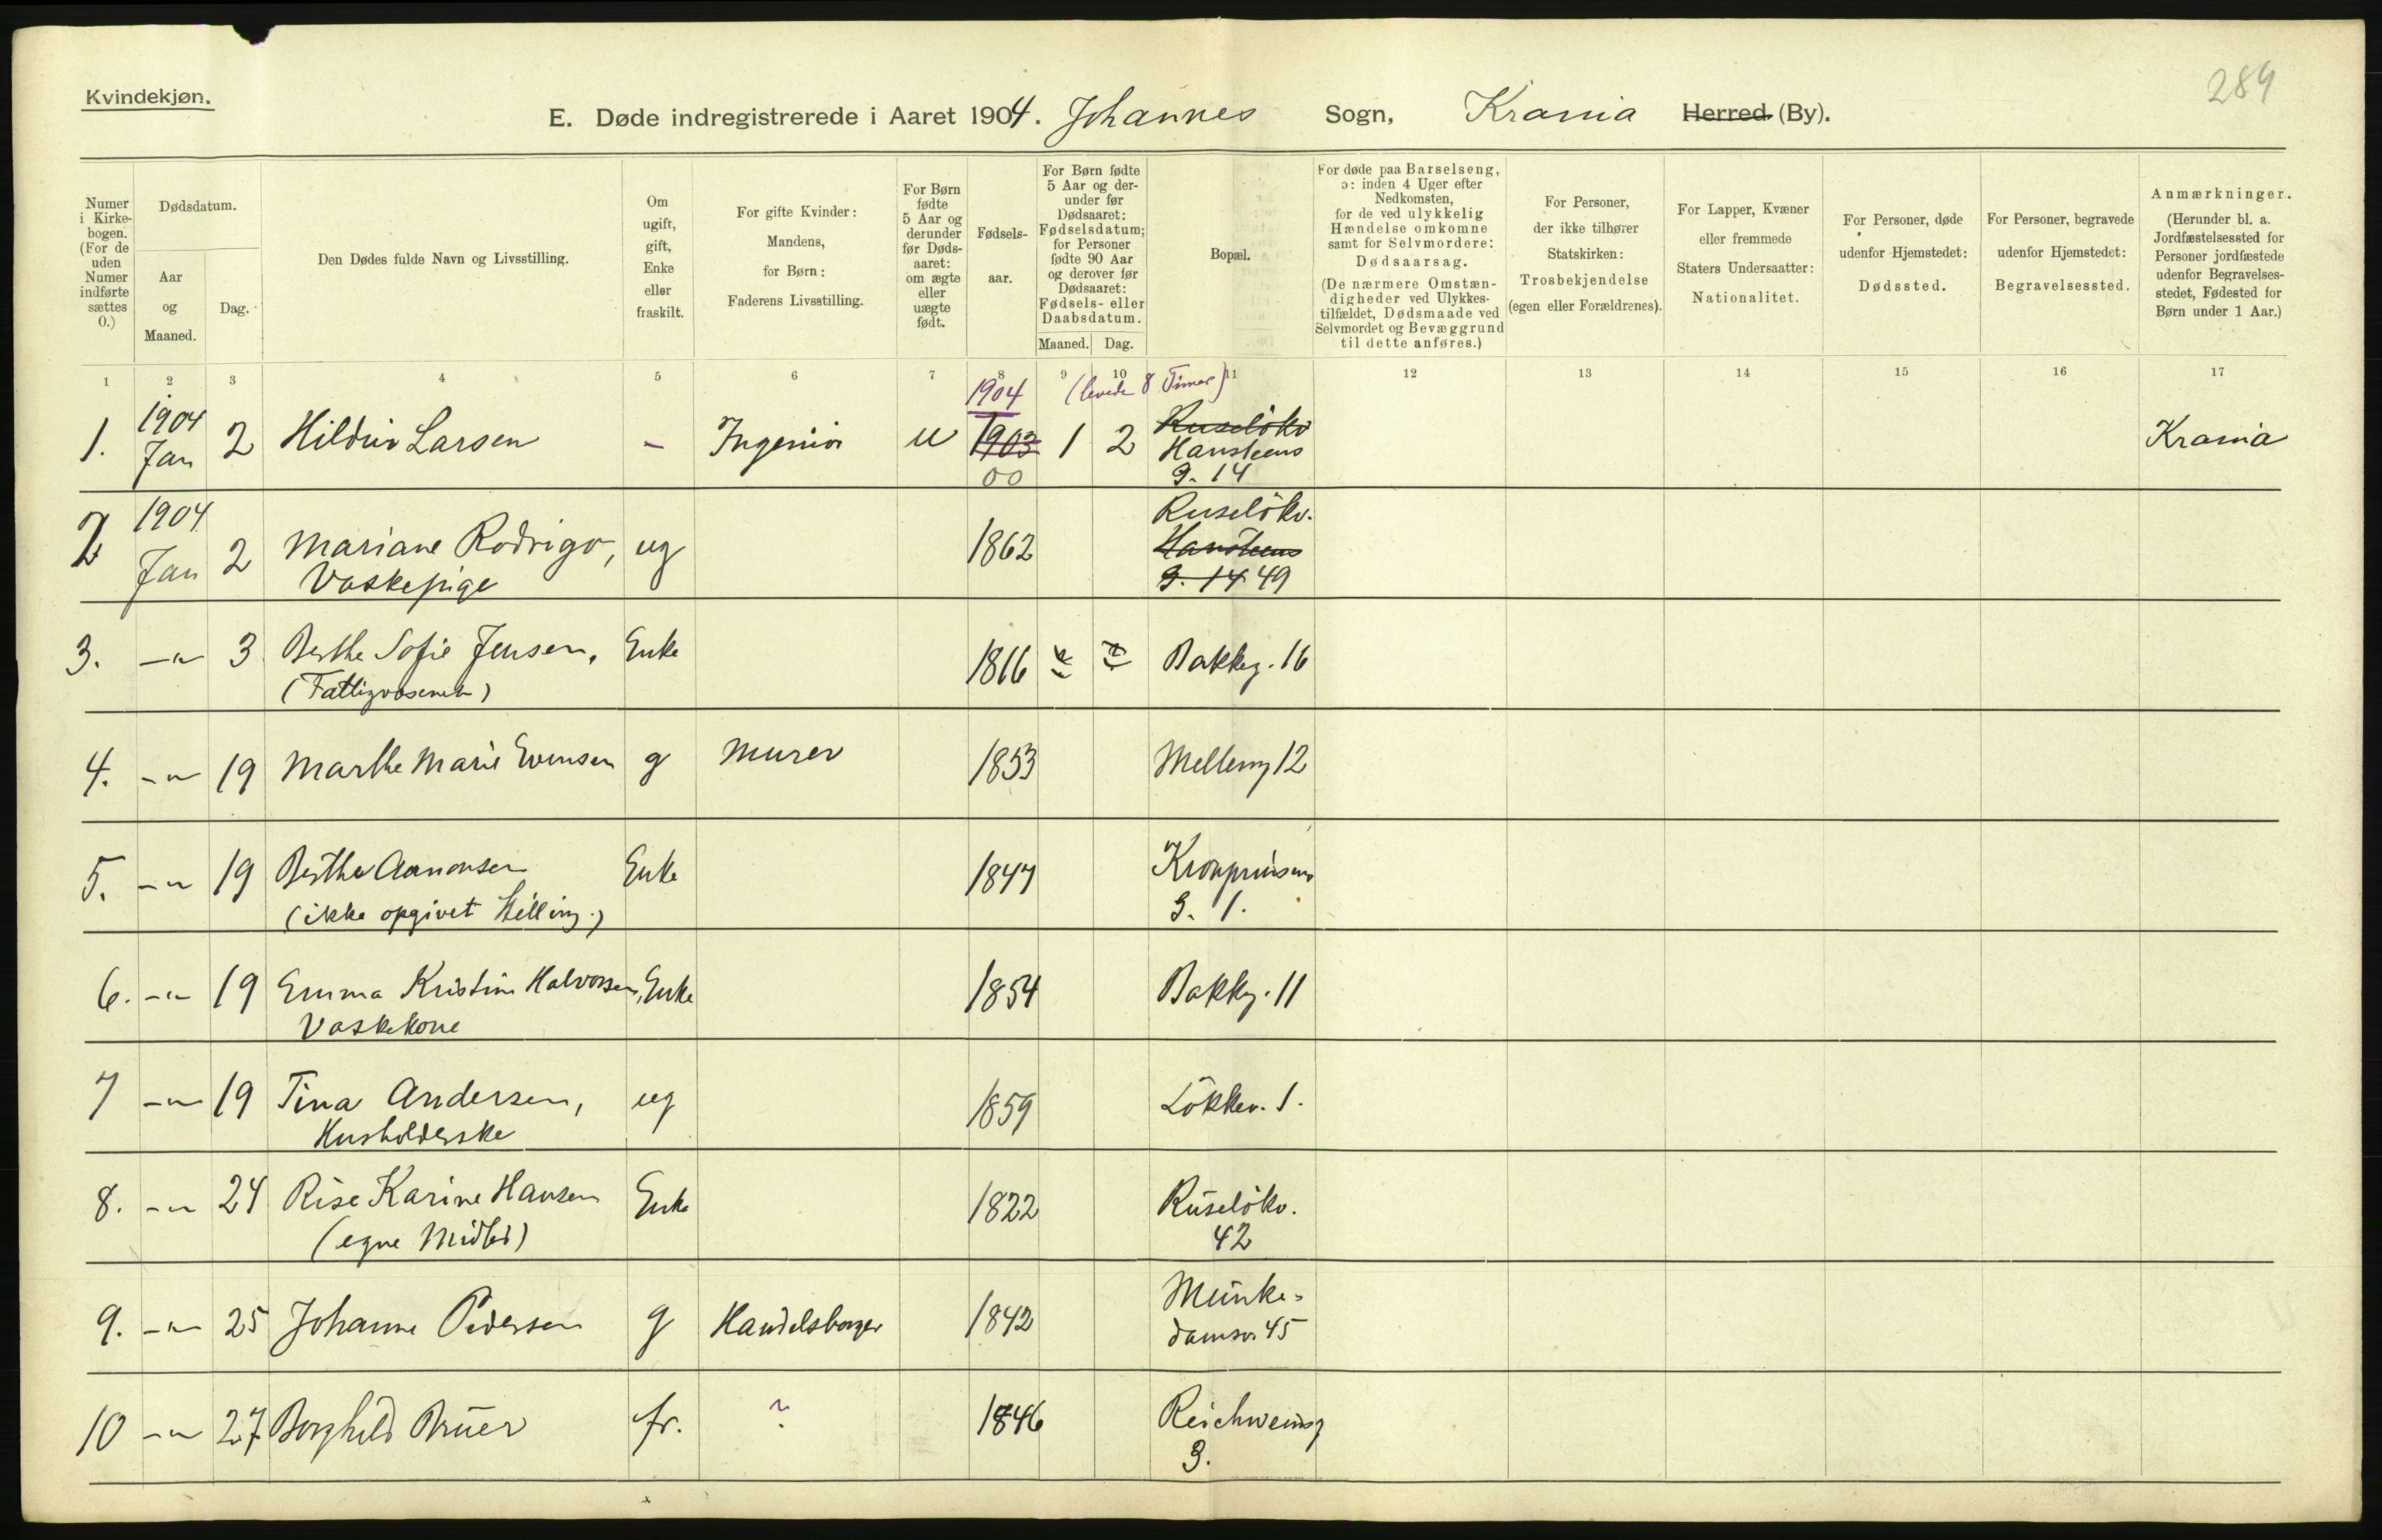 284
Kvindekjøn.
E. Døde indregistrerede i Aaret 1904. Johannes Sogn, Krania Herred (By).
Numer i Kirkebogen. (For de uden Numer indførte sættes 0.)
Dødsdatum.
Aar og Maaned.
Dag.
Den Dødes fulde Navn og Livsstilling.
Om ugift, gift, Enke eller fraskilt.
For gifte Kvinder: Mandens, for Børn: Faderens Livsstilling.
For Børn fødte 5 Aar og derunder før Dødsaaret: om ægte eller uægte født.
Fødselsaar.
For Børn fødte 5 Aar og derunder før Dødsaaret: Fødselsdatum; for Personer fødte 90 Aar og derover før Dødsaaret: Fødsels- eller Daabsdatum.
Maaned. Dag.
Bopæl.
For døde paa Barselseng, ɔ: inden 4 Uger efter Nedkomsten, for de ved ulykkelig Hændelse omkomne samt for Selvmordere: Dødsaarsag.
(De nærmere Omstændigheder ved Ulykkestilfældet, Dødsmaade ved Selvmordet og Bevæggrund til dette anføres.)
For Personer, der ikke tilhører Statskirken: Trosbekjendelse (egen eller Forældrenes).
For Lapper, Kvæner eller fremmede Staters Undersaatter: Nationalitet.
For Personer, døde udenfor Hjemstedet: Dødssted.
For Personer, begravede udenfor Hjemstedet: Begravelsessted.
Anmærkninger.
(Herunder bl. a. Jordfæstelsessted for Personer jordfæstede udenfor Begravelsesstedet, Fødested for Børn under 1 Aar.)
1 2 3 4 5 6 7 8 9 10 11 12 13 14 15 16 17
1904 (levede 8 Timer)
1. 1904 Jan 2 Hildur Larsen - Ingeniør u 1903 1 2 Ruselökv Hansteens Krania
00 g. 14
2 1904 Jan 2 Mariane Rodrigo, ug 1862 Ruselökv. Hansteens
Vaskepige g. 14 49
3. -"- 3 Berthe Sofie Jensen, Enke 1816 Bakkeg. 16
(Fattigvæsenet)
4. -"- 19 Marthe Marie Evensen g Murer 1853 Mellemg 12
5. -"- 19 Berthe Aamonsen Enke 1847 Kronprinsens
(ikke opgivet Stilling.) g. 1.
6. -"- 19 Emma Kristine Halvorsen, Enke 1854 Bakkeg. 11
Vaskekone
7 -"- 19 Tina Andersen, ug 1859 Lökkev. 1.
Husholderske
8. -"- 24 Rise Karine Hansen Enke 1822 Ruselökv.
(egne Midler) 42
9. -"- 25 Johanne Pedersen g Handelsborger 1842 Munke-
damsv. 45
10 -"- 27 Borghild Bruer fr. ? 1846 Reichweinsg
3.